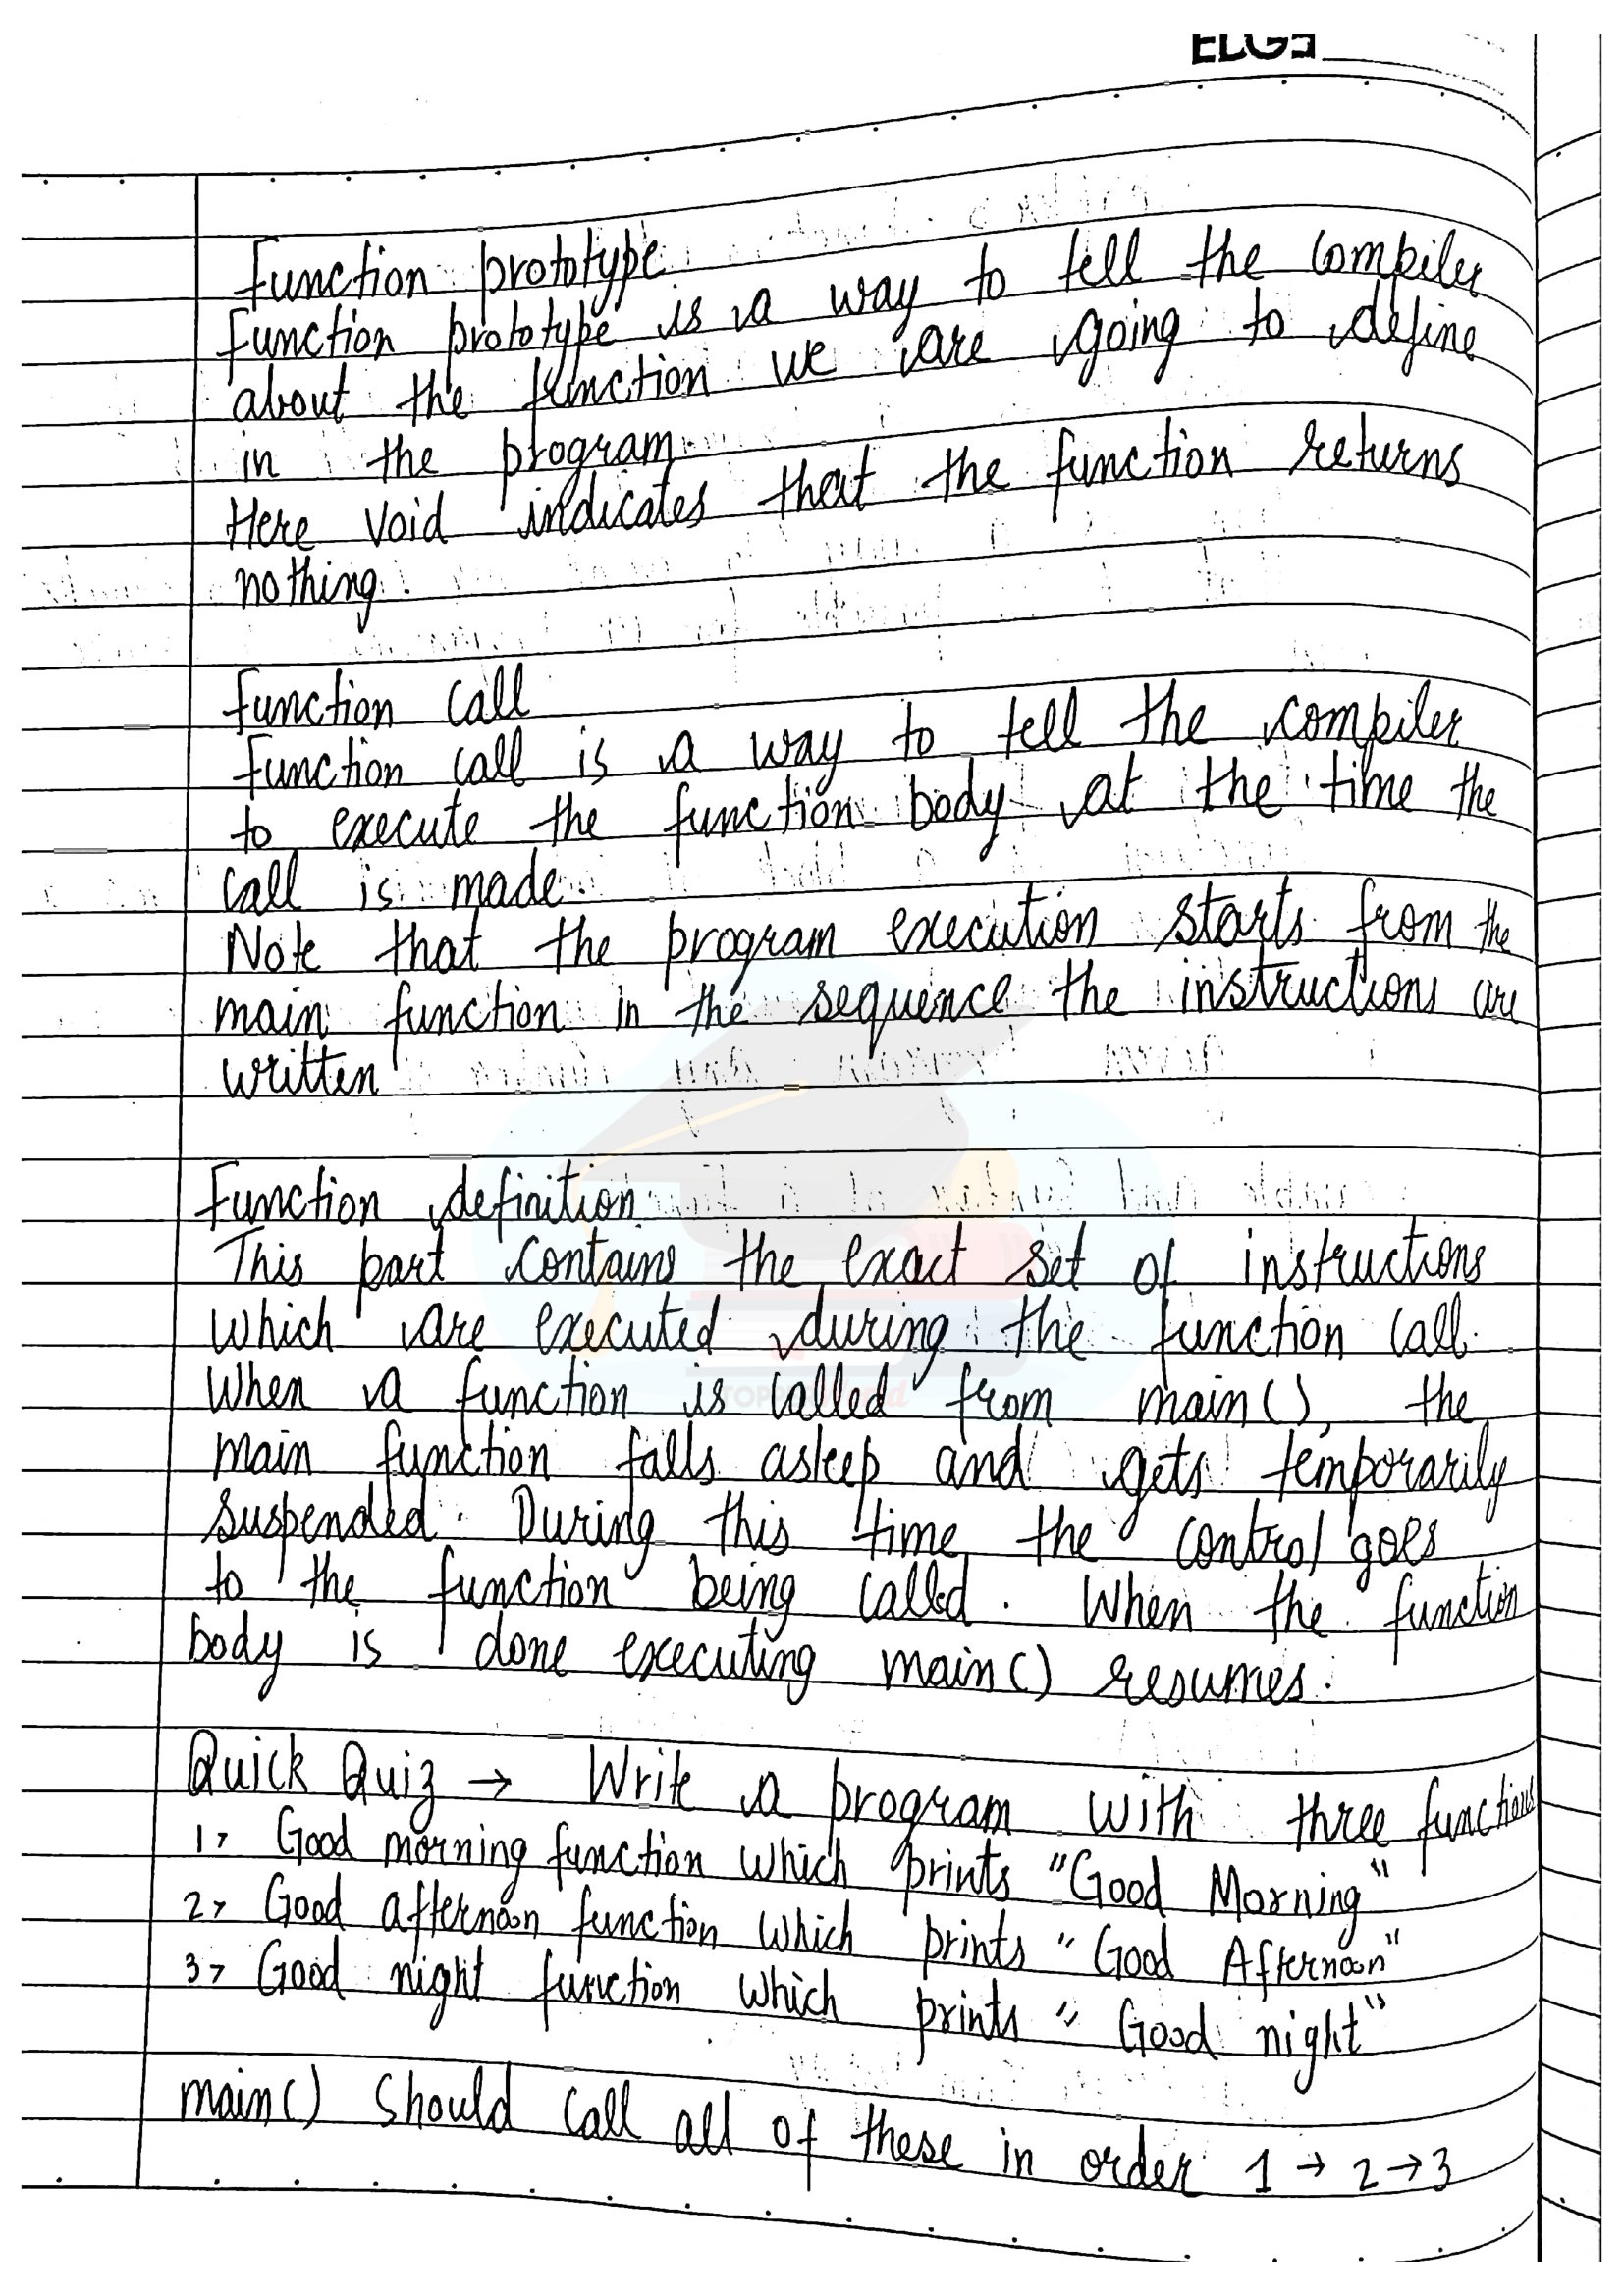 Function prototype
Function prototype is a way to tell the compiler
about the function we are going to define
in the program
Here void indicates that the function returns
nothing.
Function call
Function call is a way to tell the compiler
to execute the function body at the time the
call is made.
Note that the program execution starts from the
main function in the sequence the instructions are
written
Function definition
This part contains the exact set of instructions
which are executed during the function call.
When a function is called from main(), the
main function falls asleep and gets temporarily
suspended. During this time, the control goes
to the function being called. When the function
body is done executing main() resumes.
Quick Quiz → Write a program with three functions
1> Good morning function which prints "Good Morning"
2> Good afternoon function which prints "Good Afternoon"
3> Good night function which prints "Good night"
main() should call all of these in order 1 → 2 → 3